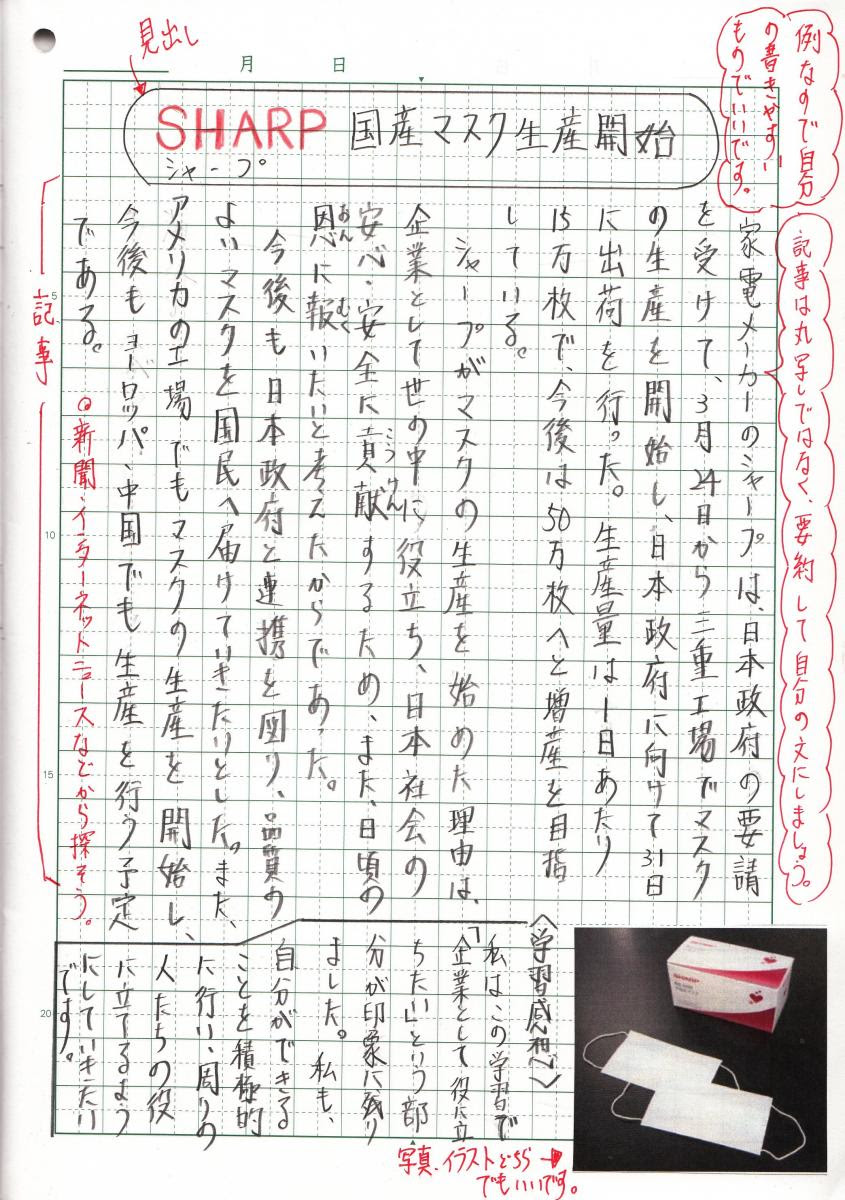 見出し
例なので自分
の書きやすい
ものでいいです。
月 日
SHARP 国産マスク生産開始
シャープ
記事は丸写しではなく、要約して自分の文にしましょう。
家電メーカーのシャープは、日本政府の要請
を受けて、3月24日から三重工場でマスク
の生産を開始し、日本政府に向けて31日
に出荷を行った。生産量は1日あたり
15万枚で、今後は50万枚へと増産を目指
している。
シャープがマスクの生産を始めた理由は、
企業として世の中に役立ち、日本社会の
安心・安全に貢献するため、また、日頃の
こうけん
恩に報いたいと考えたからであった。
おん むく
今後も日本政府と連携を図り、品質の
よいマスクを国民へ届けていきたいとした。また、
アメリカの工場でもマスクの生産を開始し、
今後もヨーロッパ、中国でも生産を行う予定
である。
記事
◎新聞・インターネットニュースなどから探そう。
5
10
15
20
〈学習感想〉
私はこの学習で
「企業として役に立
ちたい」という部
分が印象に残り
ました。私も、
自分ができる
ことを積極的
に行い、周りの
人たちの役
に立てるよう
にしていきたい
です。
SHARP
写真、イラストどちら
でもいいです。